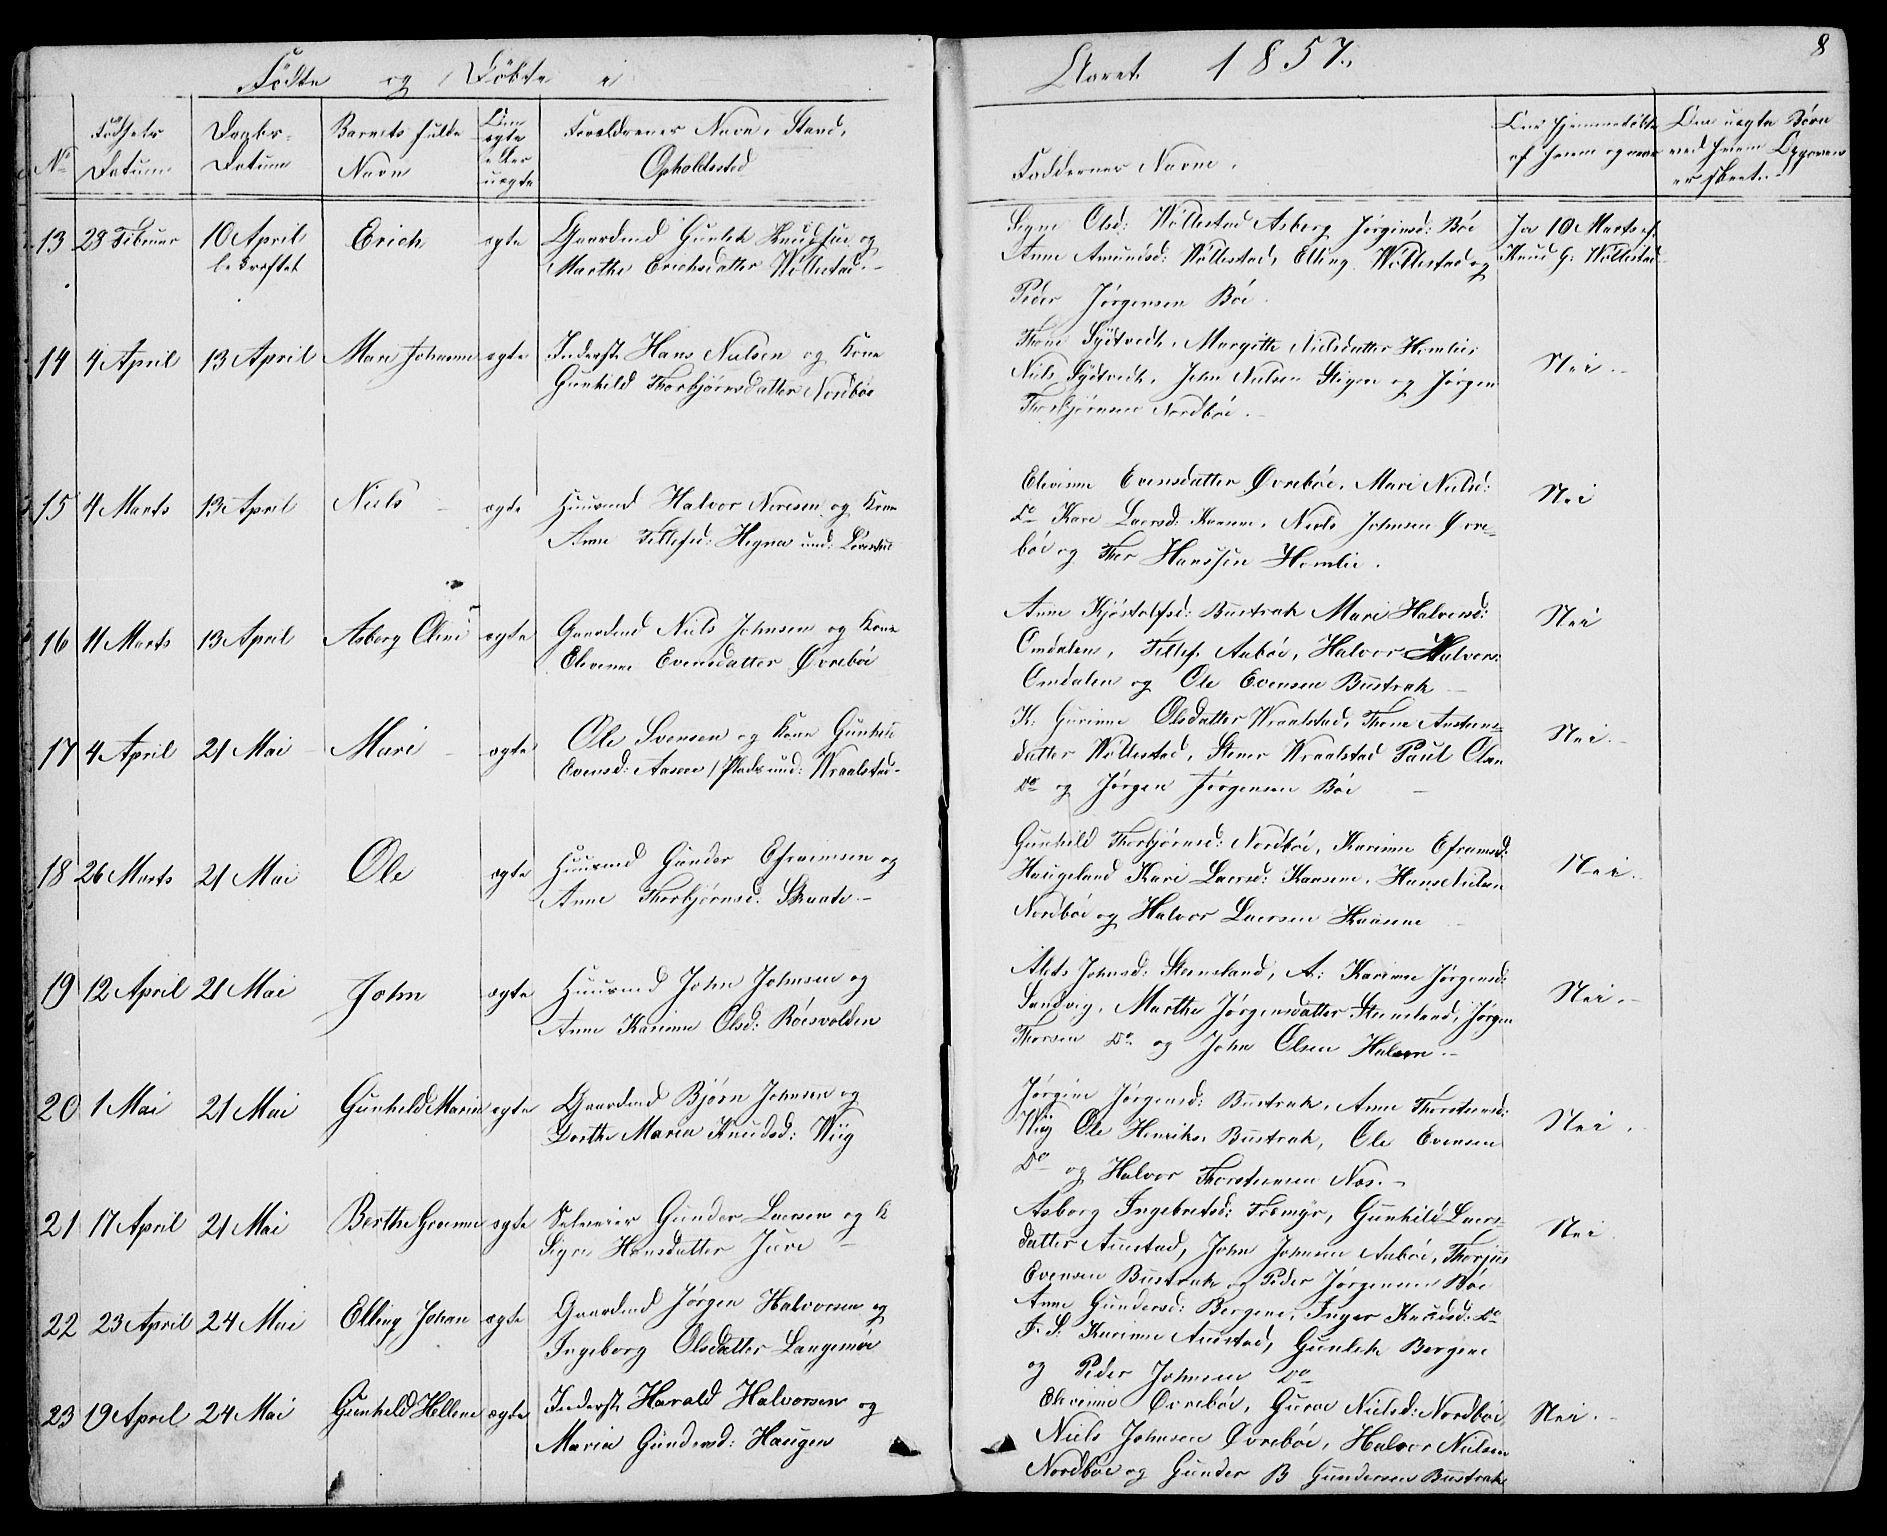 Födte og Döbte i
Aaret 1857.
8
No
Fødsels Datum
Daabs- Datum
Barnets fulde Navn
Om ægte eller uægte
Forældrenes Navn, Stand, Opholdssted
Faddernes Navne.
Om hjemmedøbte af hvem og naar
Om uægte Børn ved hvem Opgaven er skeet.
13 28 Februar 10 April Erich ægte Gaardmd Gunlek Knudsen og
bekræftet Marthe Erichsdatter Wöllestad.-
Signe Olsd: Wöllestad Asberg Jörginsd: Böe Ja 10 Marts af
Anne Amundsd: Wöllestad, Elling Wöllestad og Knud G: Wöllestad
Peder Jörgensen Böe.
14 4 April 13 April Maren Johanne ægte Inderst Hans Nielsen og Kone
Gunhild Thorbjörnsdatter Nordböe
Thone Sydtvedt, Margitte Nielsdatter Homlie, Nei.-
Niels Sydtvedt, John Nielsen Stigen og Jörgen
Thorbjörnsen Nordböe.-
15 4 Marts 13 April Niels ægte Huusmd Halvor Neresen og Kone
Anne Tellefsd: Hegna und:
Elevine Evensdatter Øvreböe, Mari Nielsd: Nei
Do Kari Laersd: Kaasene, Niels Johnsen Øvre-
böe og Thor Hanssen Homlie.
16 11 Marts 13 April Asberg Oline ægte Gaardmd Niels Johnsen og Kone
Elevine Evensdatter Øvreböe
Anne Kjöstolfsd: Bustrak Mari Halvorsd: Nei
Omdalen, Tellef Aaböe, Halvor Halvors:
Omdalen og Ole Evensen Bustrak
17 4 April 21 Mai Mari ægte Ole Svensen og Kone Gunhild
Evensd: Aasene / Plads und: Wraalstad-
K: Gurine Olsdatter Wraalstad, Thone Anstens- Nei.-
datter Wöllestad, Stener Wraalstad Paul Olsen
Do og Jörgen Jörgensen Böe
18 26 Marts 21 Mai Ole ægte Huusmd Gunder Efraimsen og
Anne Thorbjörnsd:
Gunhild Thorbjörnsd: Nordböe, Karine Eframsd: Nei.
Haugeland Kari Laersd: Kaasene, Hans Nielsen
Nordböe og Halvor Laersen Kaasene
19 12 April 21 Mai John ægte Huusmd John Johnsen og
Anne Karine Olsd: Röisvolden
Alets Johnsd: Stensland, A: Karine Jörgensd: Nei.-
Sandvig, Marthe Jörgensdatter Stensland, Jörgen
Thorsen Do og John Olsen
20 1 Mai 21 Mai Gunhild Maria ægte Gaardmd Björn Johnsen og
Dorthe Maria Knudsd: Wiig
Jörgine Jörgensd: Bustrak, Anne Thorstensd: Nei.
Wiig Ole Henriks: Bustrak, Ole Evensen
Do og Halvor Thorstensen Næs.-
21 17 April 21 Mai Berthe ægte Selveier Gunder Laersen og K
Signe Hansdatter Jure
Asborg Ingebretsd: Tromyr, Gunhild Laers- Nei.
datter Austad, John Johnsen Aaböe, Thorjus
Evensen Bustrak og Peder Jörgensen Böe
22 23 April 24 Mai Elling Johan ægte Gaardmd Jörgen Halvorsen og
Ingeborg Olsdatter Langemöe
Anne Gundersd: Bergene, Inger Knudsd: Do
Karine Austad, Gunlek Bergene
og Peder Johnsen Do
23 19 April 24 Mai Gunhild Hellene ægte Inderst Harald Halvorsen og
Maria Gundersd: Haugen
Elevine Øvreböe, Guroe Nielsd: Nordböe, Nei.-
Niels Johnsen Øvreböe, Halvor Nielsen
Nordböe og Gunder B Gundersen Bustrak